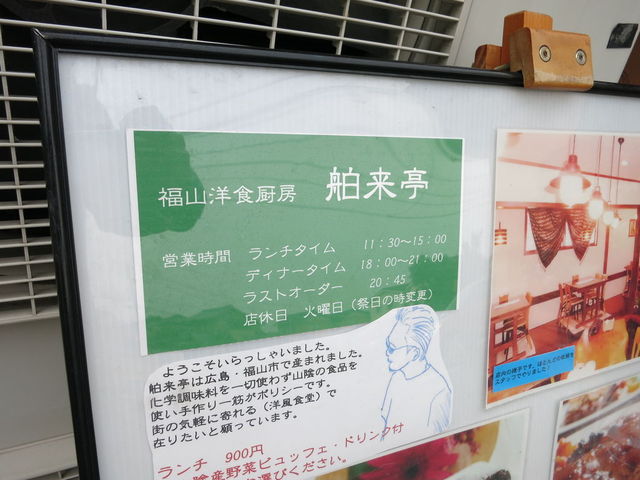 福山洋食厨房 舶来亭
営業時間 ランチタイム 11:30～15:00
ディナータイム 18:00～21:00
ラストオーダー 20:45
店休日 火曜日(祭日の時変更)
ようこそいらっしゃいました。
舶来亭は広島・福山市で産まれました。
化学調味料を一切使わず山陰の食品を
使い手作り一筋がポリシーです。
街の気軽に寄れる(洋風食堂)で
在りたいと願っています。
ランチ 900円
山陰産野菜ビュッフェ・ドリンク付
お選びください。
店内の様子です。ほとんどの改装を
スタッフでやりました!